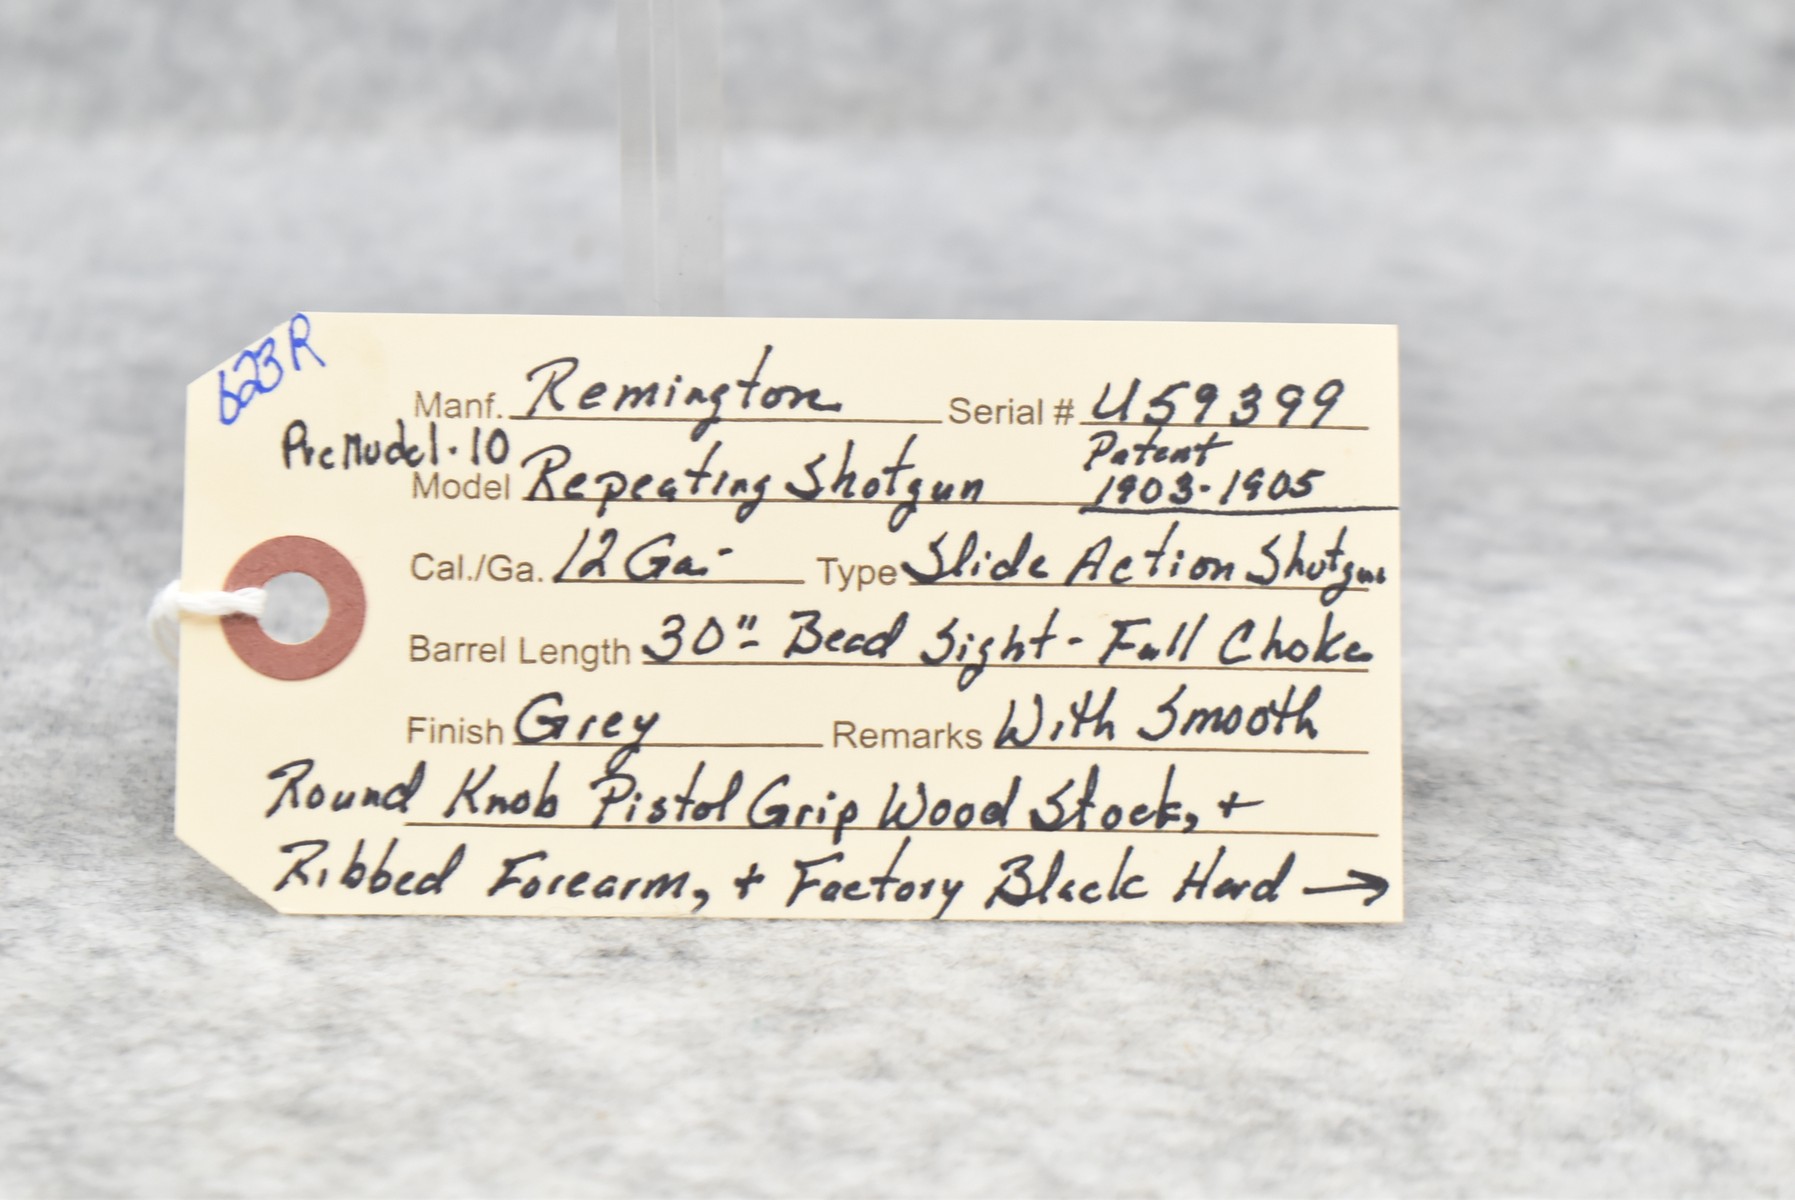 623R
Manf. Remington Serial # U59399
Pre Model·10 Patent
Model Repeating Shotgun 1903-1905
Cal./Ga. 12 Ga. Type Slide Action Shotgun
Barrel Length 30"- Bead Sight - Full Choke
Finish Grey Remarks With Smooth
Round Knob Pistol Grip Wood Stock, +
Ribbed Forearm, + Factory Black Hard →